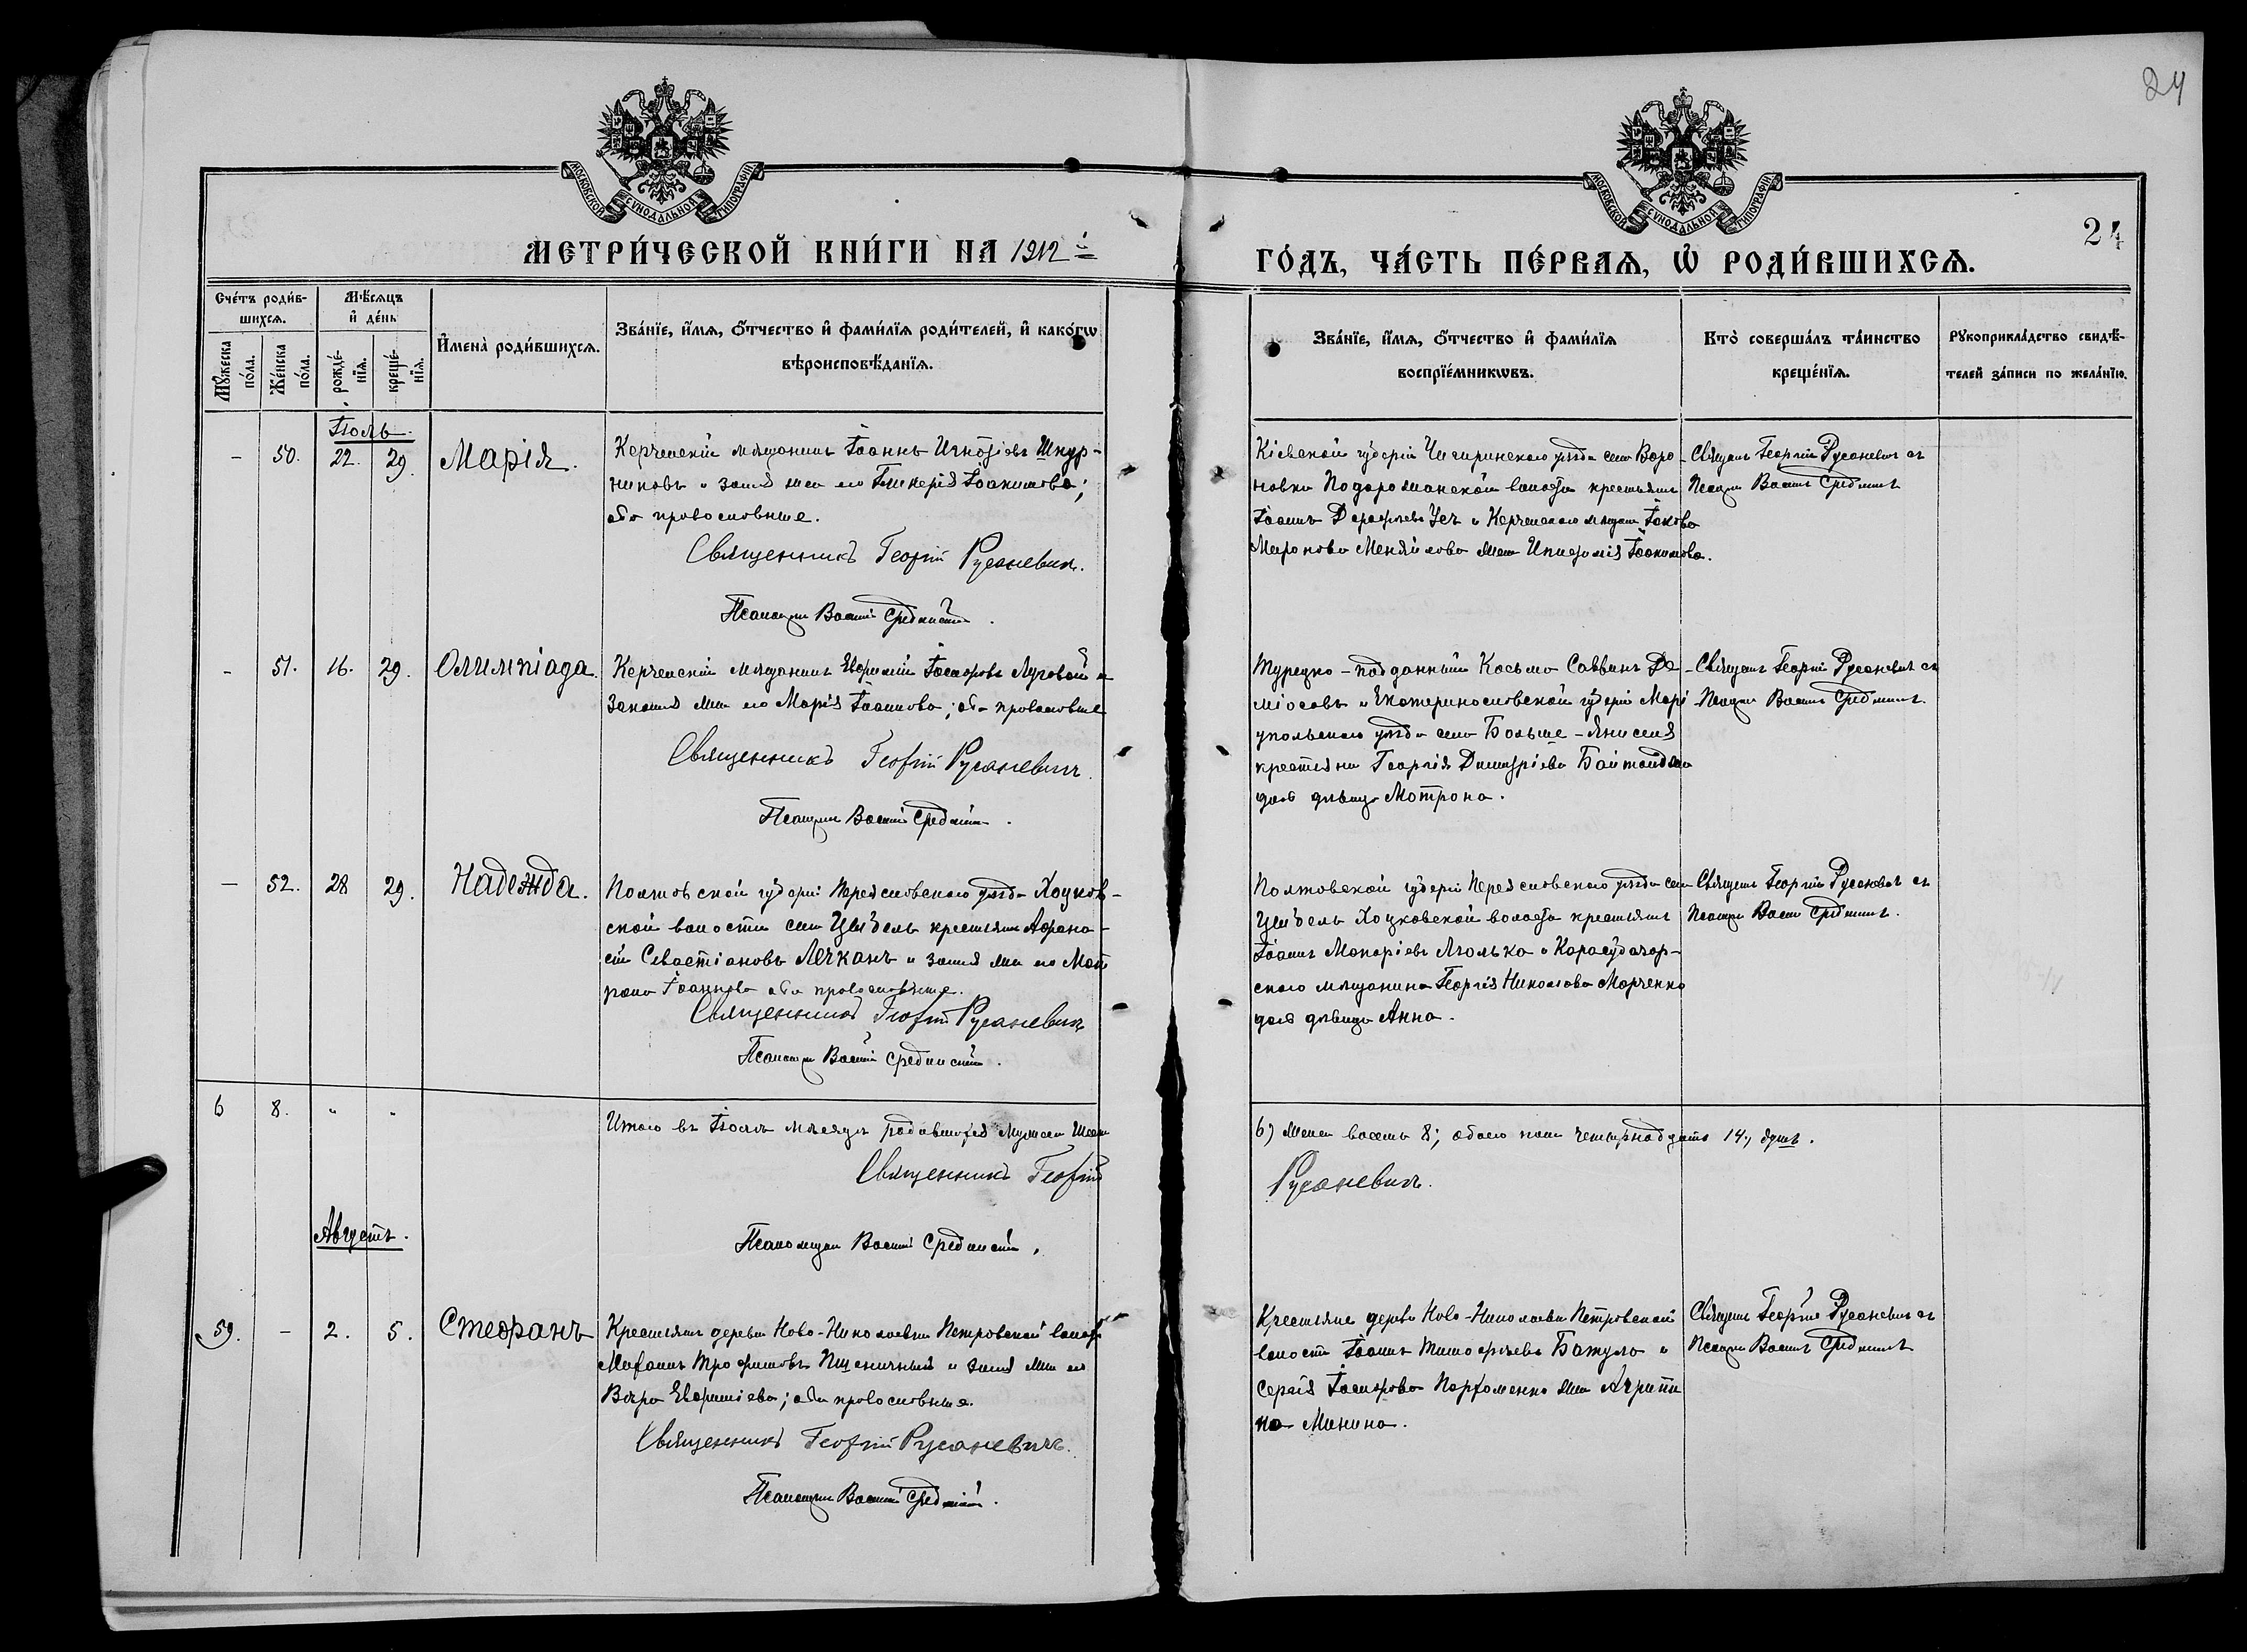 24
МОСКОВСКОЙ СѴНОДАЛЬНОЙ ТИПОГРАФІИ
МОСКОВСКОЙ СѴНОДАЛЬНОЙ ТИПОГРАФІИ
24
МЕТРИ́ЧЕСКОЙ КНИ́ГИ НА 1912 й
ГО́ДЪ, ЧА́СТЬ ПЕ́РВАѦ, Ѡ҆ РОДИ́ВШИХСѦ.
Сче́тъ роди́в-
шихсѧ.
Мѣ́сѧцъ
и҆ де́нь
Мꙋ́жеска по́ла.
Же́нска по́ла.
рожде́-
нїѧ.
креще́-
нїѧ.
И҆мена̀ роди́вшихсѧ.
Зва́нїе, и҆́мѧ, ѻ҆́тчество и҆ фами́лїѧ роди́телей, и҆ како́гѡ
вѣроисповѣ́данїѧ.
Зва́нїе, и҆́мѧ, ѻ҆́тчество и҆ фами́лїѧ
воспрїе́мникѡвъ.
Кто̀ соверша́лъ та́инство
креще́нїѧ.
Рꙋкоприкла́дство свидѣ́-
телей за́писи по жела́нїю.
Іюль.
- 50. 22. 29. Марія.
Керченскій мѣщанинъ Іоаннъ Игнатіевъ Шкур-
никовъ и закон жена его Гликерія Іоакимова;
оба православные.
Священникъ Георгій Русаневич.
Псаломщик Василій Срединскій.
Кіевской губерніи Чигиринскаго уѣзда села Воро-
новки Подорожанской волости крестьянин
Іоаннъ Дорофѣевъ Усъ и Керченскаго мѣщан Іакова
Миронова Меняйлова жена Іоакимова.
Священ Георгій Русаневичъ съ
Псалом Васил Срединск
- 51. 16. 29. Олимпіада.
Керченскій мѣщанинъ Евфимій Луговой и
законная жена его Марія Іоаннова; оба православные
Священникъ Георгій Русаневичъ.
Псаломщик Василій Срединскій.
Турецко-подданный Косьма Саввинъ Де-
міосовъ и Екатеринославской губерніи Марі-
упольскаго уѣзда села Больше-Янисоля
крестьяни Георгія Димитріева
дочь дѣвица Мотрона.
Священ Георгій Русаневичъ съ
Псалом Васил Срединск
- 52. 28 29. Надежда.
Полтавской губерніи Переяславскаго уѣзда Хоцков-
ской волости села Цыбель крестьянин Афана-
сій Севастіановъ Лечканъ и закон жена его Мат
рона Іоаннова оба православные.
Священникъ Георгій Русаневич
Псаломщик Василій Срединскій.
Полтавской губерніи Переяславскаго уѣзда села
Цыбель Хоцковской волости крестьянин
Іоаннъ Макаріевъ и Карасубазар-
скаго мѣщанина Георгія Николаева Марченко
дочь дѣвица Анна.
Священ Георгій Русаневич съ
Псалом Васил Срединск.
6 8. " "
Итого въ Іюлѣ мѣсяцѣ родившихся мужеска шесть
6) женска восемь 8; обоего пола четырнадцать 14, душъ.
Священникъ Георгій
Русаневич.
Псаломщик Василій Срединскій.
Августъ.
59. - 2. 5. Стефанъ
Крестьянин деревни Ново-Николаевки Петровской волости
Трофимовъ Пшеничный и закон жена его
Вѣра Евфиміева; оба православные.
Священникъ Георгій Русаневичъ.
Псаломщик Василій Срединскій.
Крестьяне деревни Ново-Николаевки Петровской
волости Іоаннъ Тимофѣевъ Бажуло и
Сергія Пархоменко жена Агрипи
на Минина.
Священ Георгій Русаневич съ
Псалом Васил Срединск